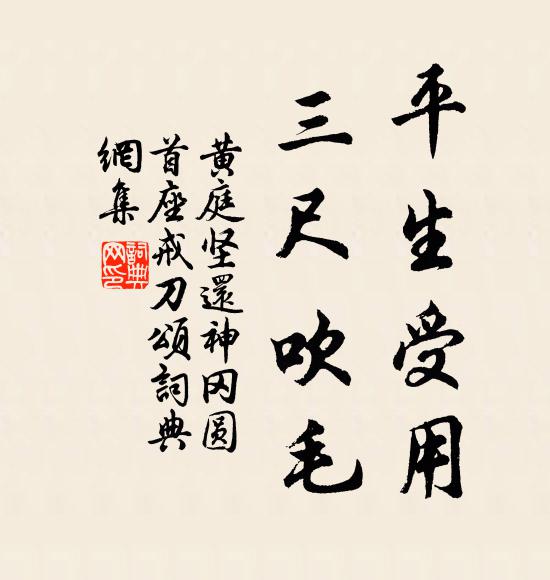 平生受用
三尺吹毛
黄庭坚還神冈圆
首座戒刀頌詞典
網集
詞典網印